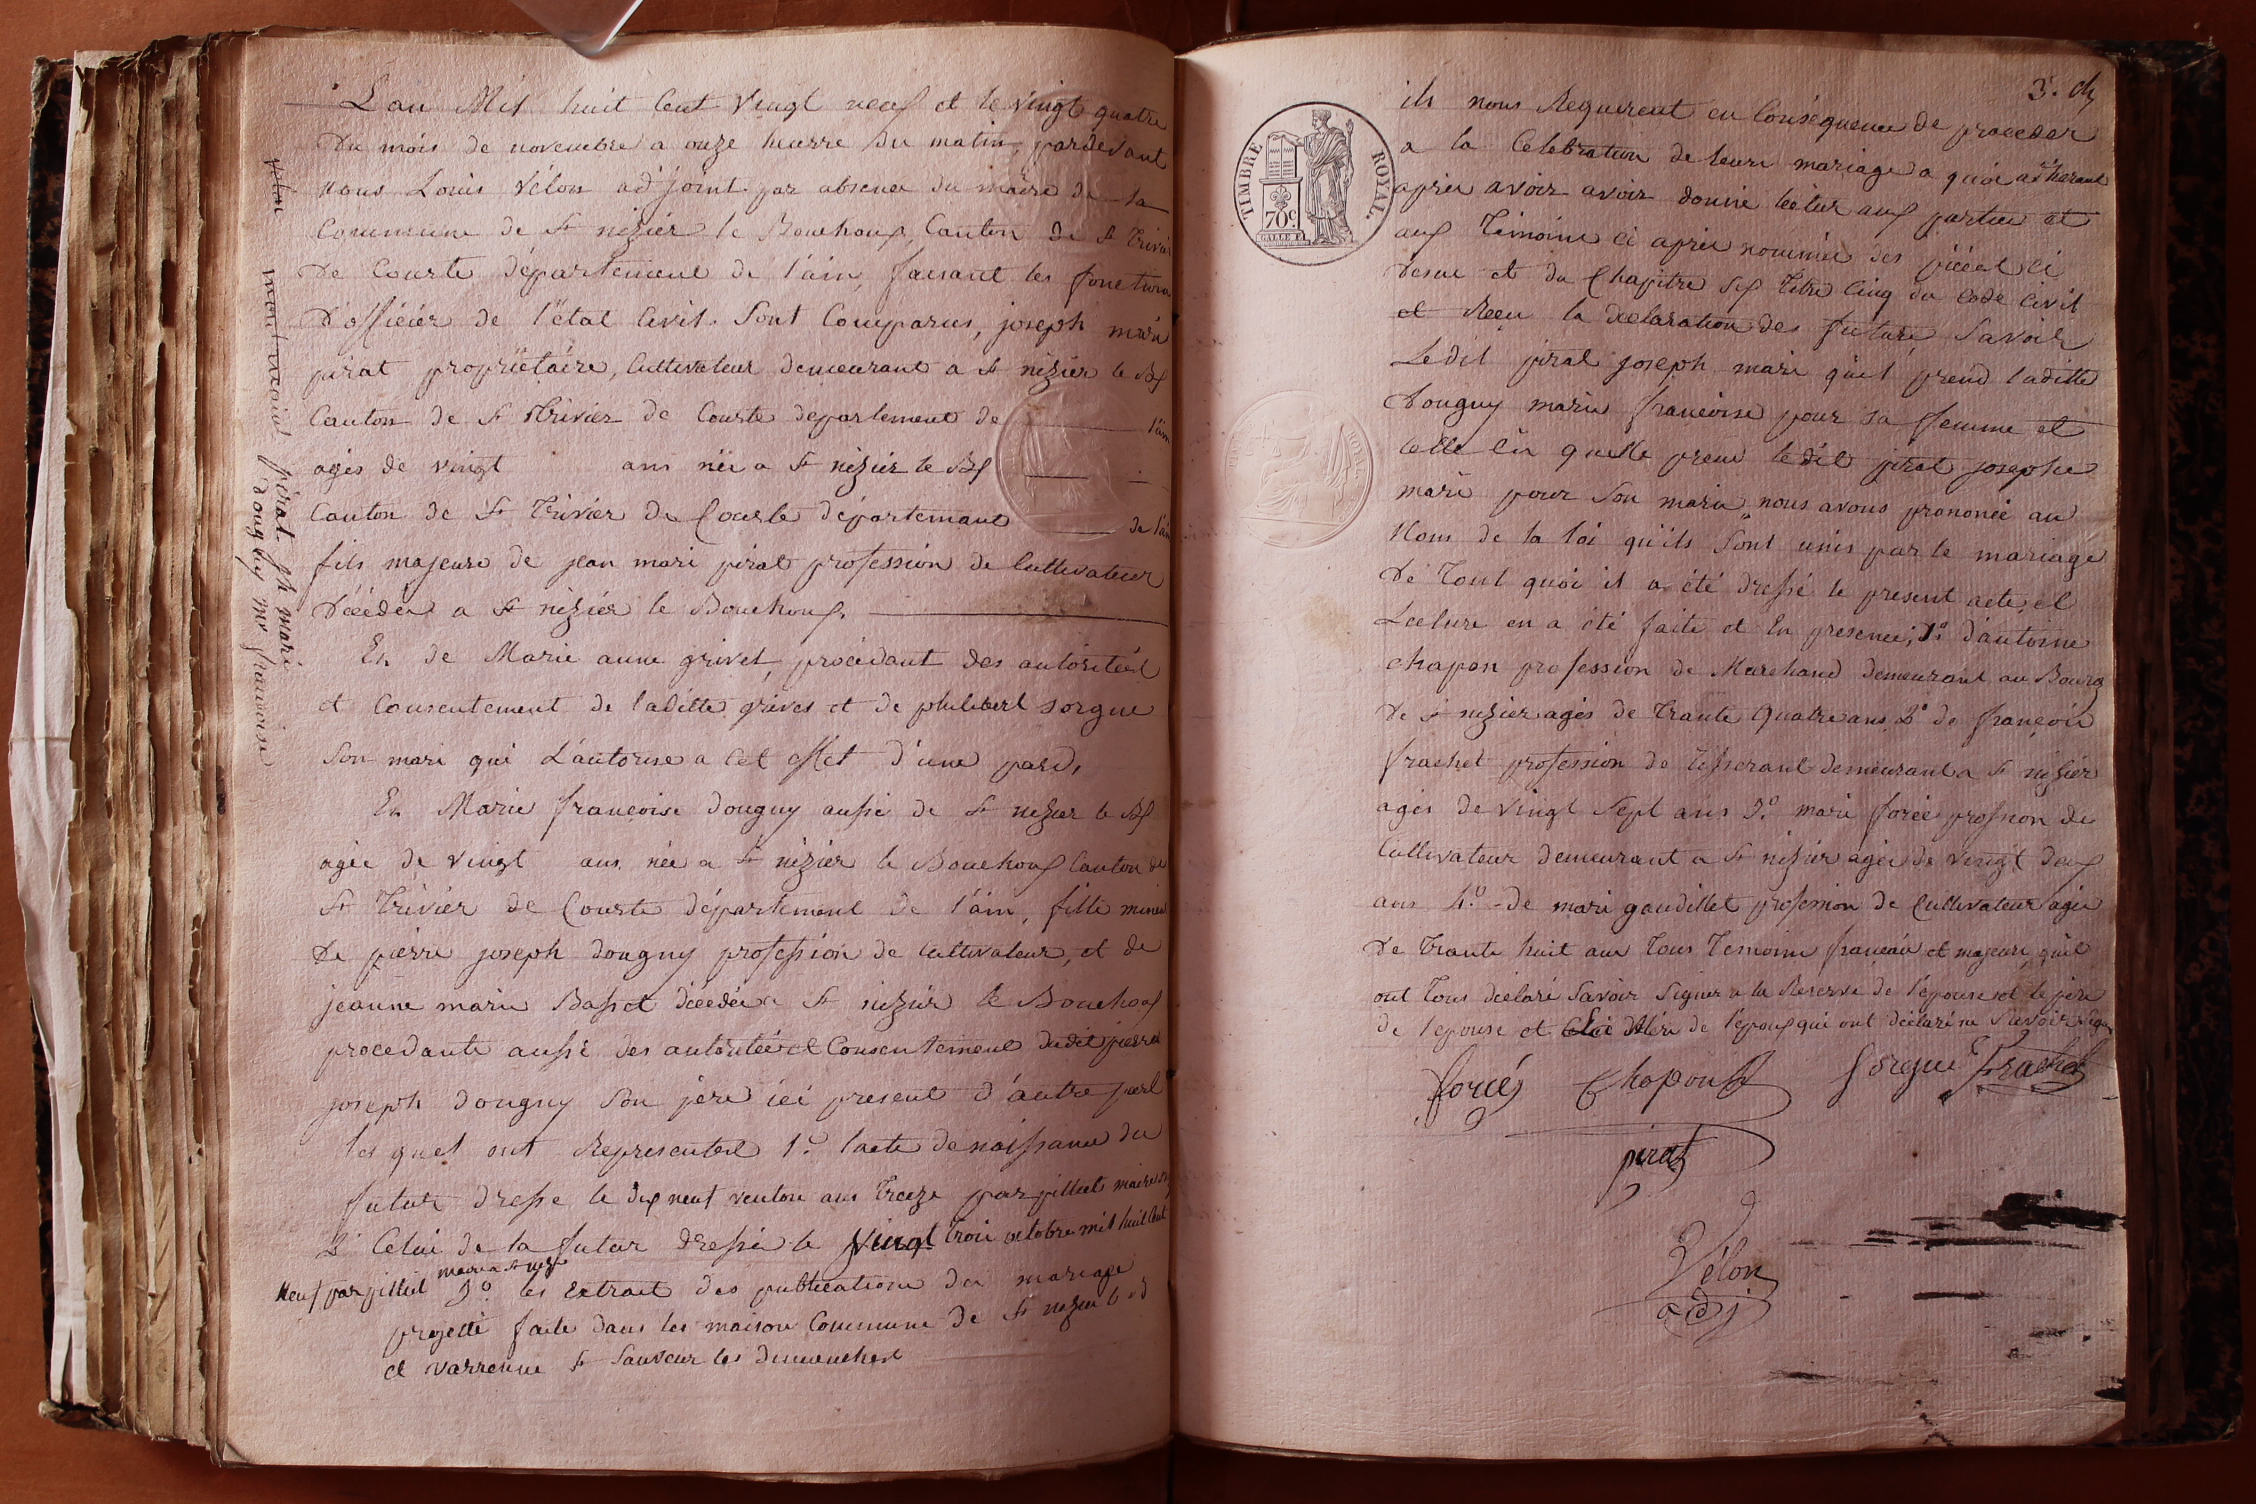 L'an Mil huit Cent Vingt neuf et le vingt quatre
Du mois de novembre a onze heurre Du matin, pardevant
nous Louis Vélon adjoint par absence du maire de la
Commune de St nizier le Bouchoux, Canton de St Trivier
De Courte département de l'ain, faisant les fonctions
D'officier de l'état Civil. Sont Comparus, joseph mari
pirat propriétaire, Cultivateur demeurant a St nizier le Bx
Canton de St Trivier de Courte departement de l'ain
agés de vingt ans née a St nizier le Bx
Canton de St Trivier De Courte département de l'ain
fils majeure de jean mari pirat profession de Cultivateur
Décédée a St nizier le Bouchoux.
Et de Marie anne grivet, procédant des autoritéet
et Consentement de laditte grivet et de philibert Sorgue
Son mari qui L'autorise a Cet effet d'une part,
Et Marie françoise dougny aussi de St nizier le Bx
agée de vingt ans née a St nizier le Bouchoux Canton de
St Trivier de Courte département de l'ain, fille mineu
De pierre joseph dougny profession de Cultivateur, et de
jeanne marie Basset décédée a St nizier le Bouchoux
procedante aussi des autoritéet Consentement dudit pierre
joseph dougny Son père ici present d'autre part
les quel ont Representent 1º. lacte denaissance du
futur dresse le dix neuf ventou ans treze par pilliet maire
2º Celui de la futur dressé le Vingt troi octobre mil huit Cent
Neuf par pilliet maire a St nizie 3º. les Extrait des publications du mariage
projetté faite dans les maison Commune de St nizier le
et varrenne St Sauveur les dimenchent
pirat jh mari
dougny mr francoise
3. ch
TIMBRE ROYAL
70 c
ils nous Requirent en Conséquence de proceder
a la Celebration de leurs mariage a quoi adherant
aprés avoir avoir donné lectur aux parties et
aux Témoins ci aprés nommés des pièces ci
desue et du Chapitre six titre Cinq du Code Civil
et Recu la declaration des futurs Savoir
Ledit pirat joseph mari qu'il prend laditte
dougny marie francoise pour sa femme et
celle ci quelle prend ledit pirat josephe
mari pour Son marie nous avons prononcé au
Nom de la loi qu'ils Sont unis par le mariage
De Tout quoi il a été dressé le present acte, et
Lecture en a été faite et En presence, 1º d'antoine
chapon profession de Marchand demeurant au Bourg
De St nizier agés de trante quatre ans 2º de françois
frachet profession de tisserant demeurant a St nizier
agés de vingt Sept ans 3º. mari forée profession de
Cultivateur demeurant a St nizier agés de vingt deux
ans 4º. de mari gaudillet profession de Cultivateur agée
De trante huit ans tous Temoins francais et majeurs, qu'il
ont tous déclaré Savoir Signer a la Reserve de l'épouse et le père
de l'epouse et de l'époux qui ont déclaré ne Savoir Signer
forcé Chapon Sorgue Frachet
pirat
Vélon
adj